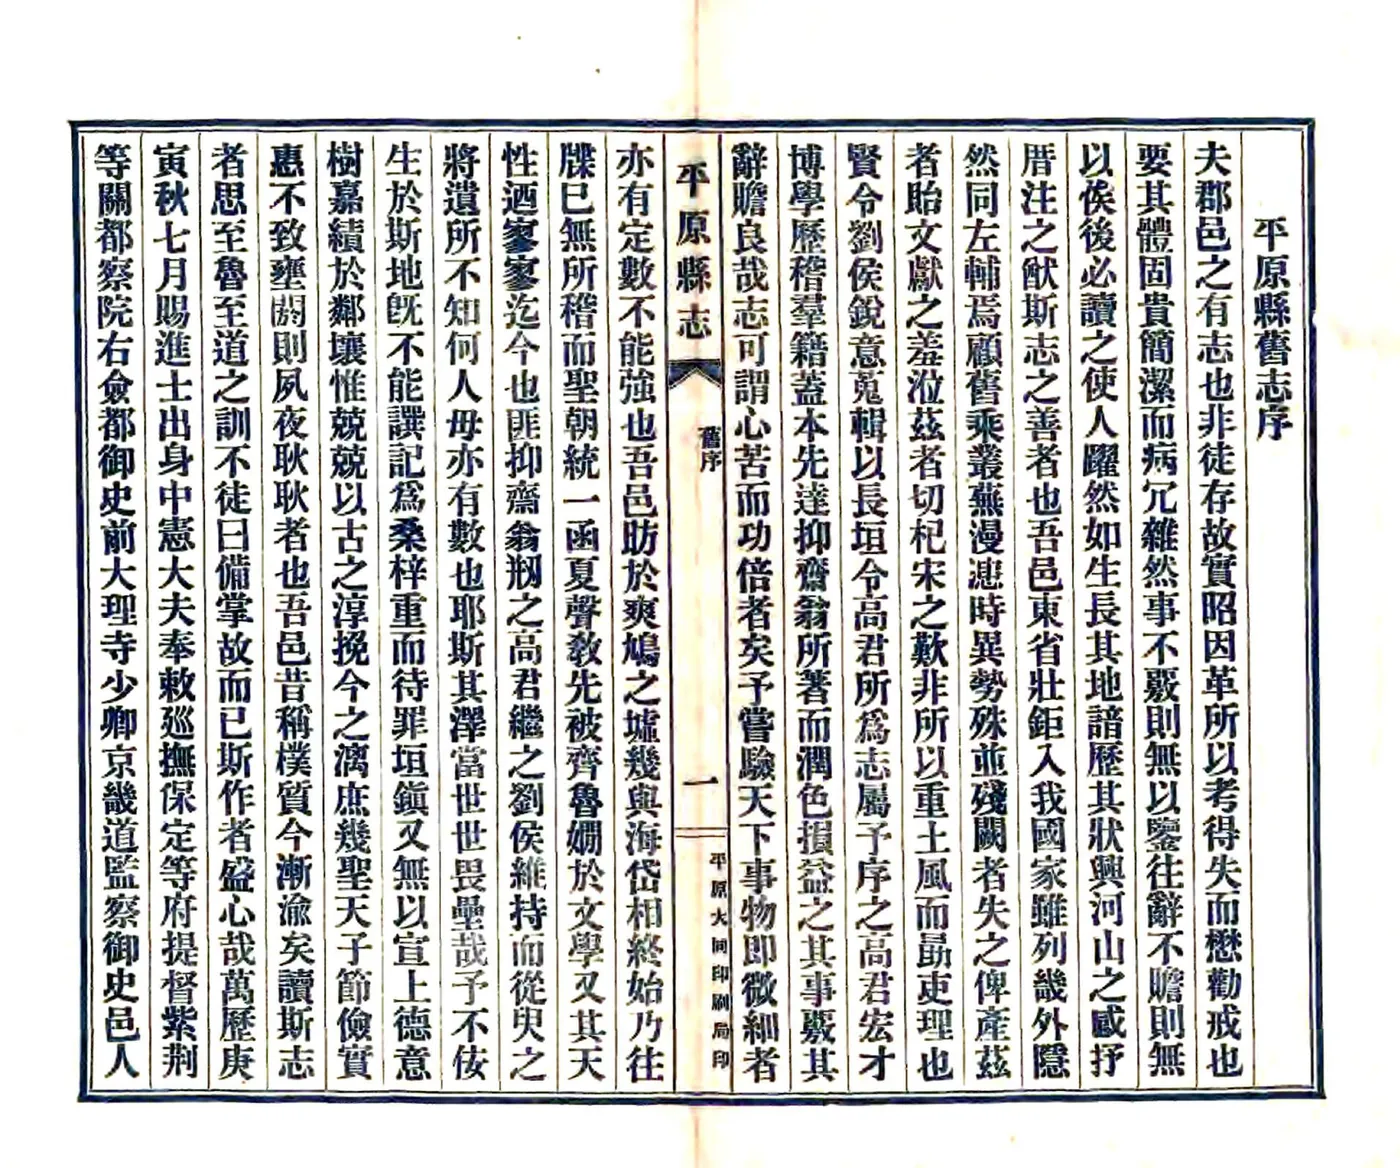 平原縣舊志序
夫郡邑之有志也非徒存故實昭因革所以考得失而懋勸戒也
要其體固貴簡潔而病冗雜然事不覈則無以鑒往辭不贍則無
以俟後必讀之使人躍然如生長其地諳歷其狀興河山之感抒
厝注之猷斯志之善者也吾邑東省壯鉅入我國家雖列畿外隱
然同左輔焉顧舊乘叢蕪漫漶時異勢殊並殘闕者失之俾產茲
者貽文獻之羞涖茲者切杞宋之歎非所以重土風而勗吏理也
賢令劉侯銳意蒐輯以長垣令高君所為志屬予序之高君宏才
博學歷稽羣籍蓋本先達抑齋翁所著而潤色損益之其事覈其
辭贍良哉志可謂心苦而功倍者矣予嘗驗天下事物即微細者
平原縣志
舊序
一
平原大同印刷局印
亦有定數不能強也吾邑昉於爽鳩之墟幾與海岱相終始乃往
牒已無所稽而聖朝統一函夏聲教先被齊魯嫺於文學又其天
性迺寥寥迄今也匪抑齋翁剏之高君繼之劉侯維持而從臾之
將遺所不知何人毋亦有數也耶斯其澤當世世畏壘哉予不佞
生於斯地旣不能譔記為桑梓重而待罪垣鎮又無以宣上德意
樹嘉績於鄰壤惟兢兢以古之淳挽今之漓庶幾聖天子節儉實
惠不致壅閼則夙夜耿耿者也吾邑昔稱樸質今漸渝矣讀斯志
者思至魯至道之訓不徒曰備掌故而已斯作者盛心哉萬歷庚
寅秋七月賜進士出身中憲大夫奉敕廵撫保定等府提督紫荆
等關都察院右僉都御史前大理寺少卿京畿道監察御史邑人